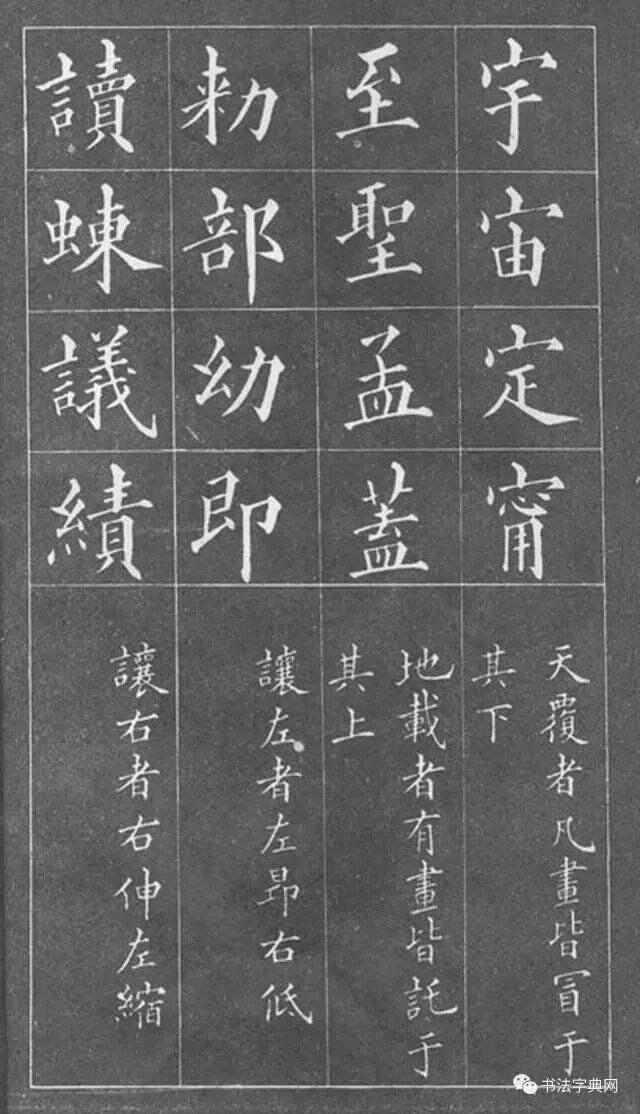 宇宙定甯
天覆者凡畫皆冒于
其下
至聖孟蓋
地載者有畫皆託于
其上
勑部幼即
讓左者左昂右低
讀蝀議績
讓右者右伸左縮
书法字典网